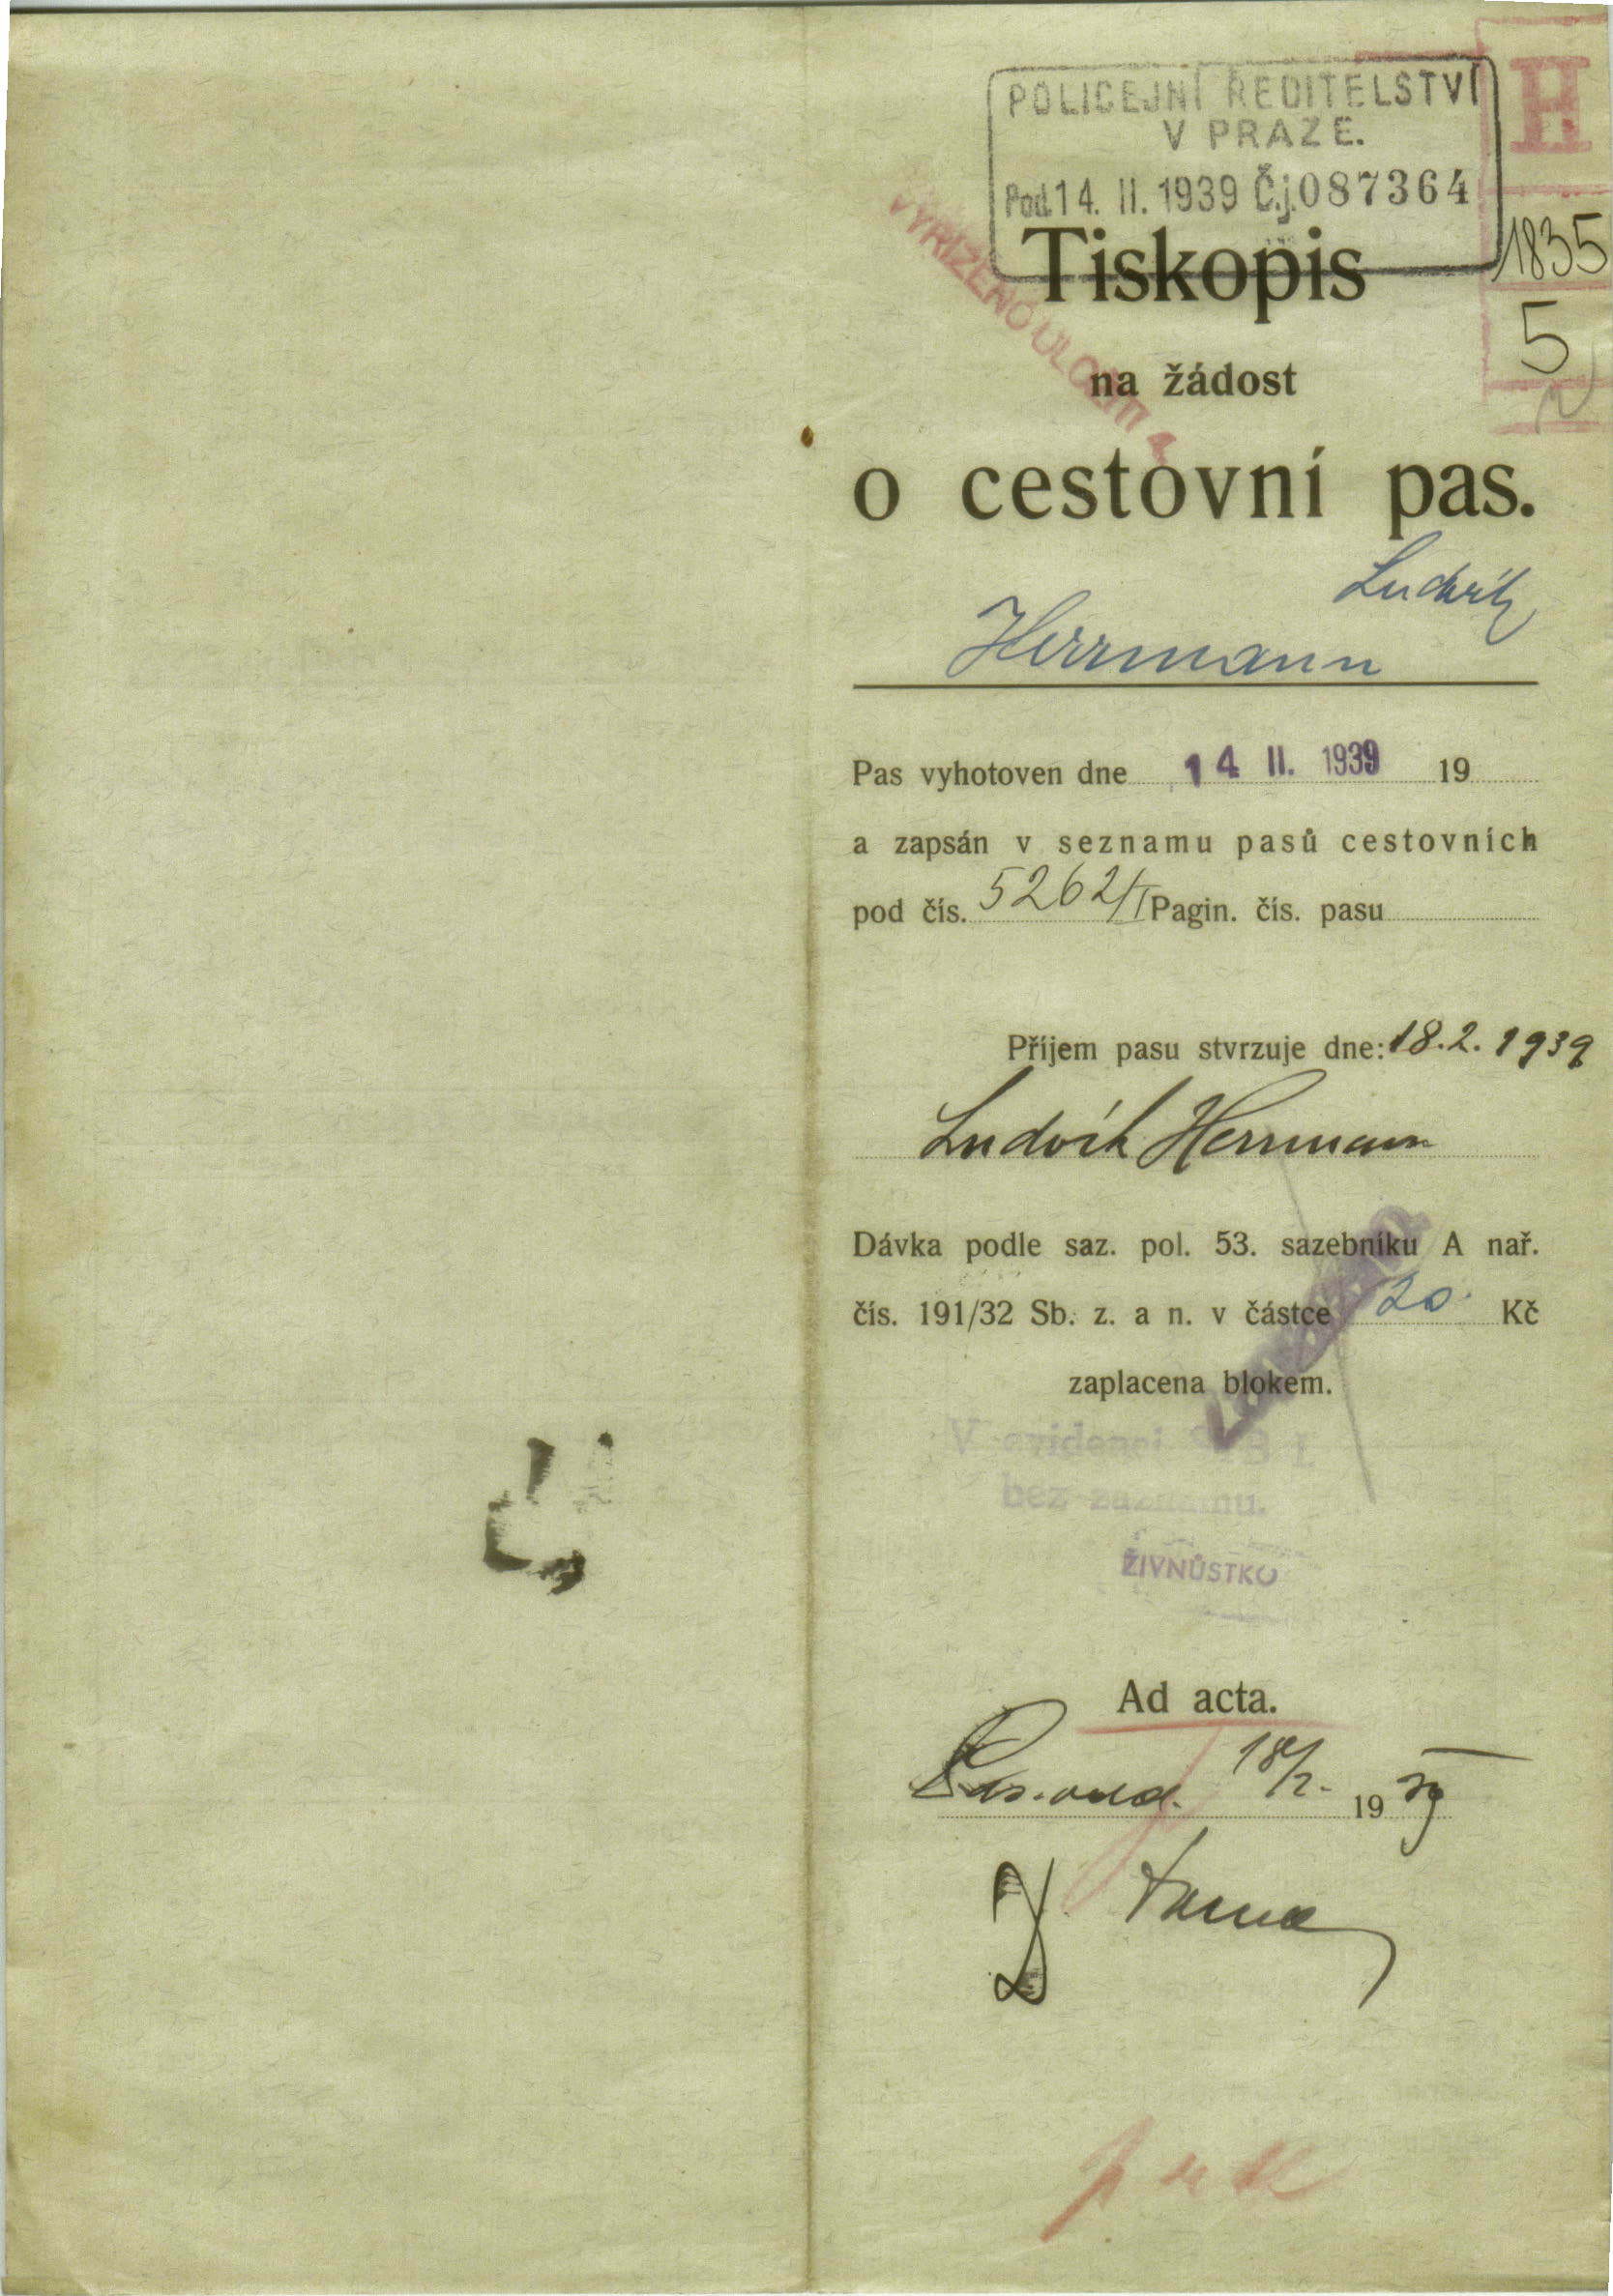 POLICEJNÍ ŘEDITELSTVÍ
V PRAZE.
Pod. 14. II. 1939 Č.j. 087364
H
1835
5
VYŘÍZENO ULOŽITI
Tiskopis
na žádost
o cestovní pas.
Ludvík
Herrmann
Pas vyhotoven dne 14 II. 1939 19
a zapsán v seznamu pasů cestovních
pod čís. 5262/I Pagin. čís. pasu
Příjem pasu stvrzuje dne: 18. 2. 1939
Ludvík Herrmann
Dávka podle saz. pol. 53. sazebníku A nař.
čís. 191/32 Sb. z. a n. v částce 20 Kč
zaplacena blokem.
V evidenci
bez záznamu.
ŽIVNŮSTKO
Ad acta.
18/2. 19 39